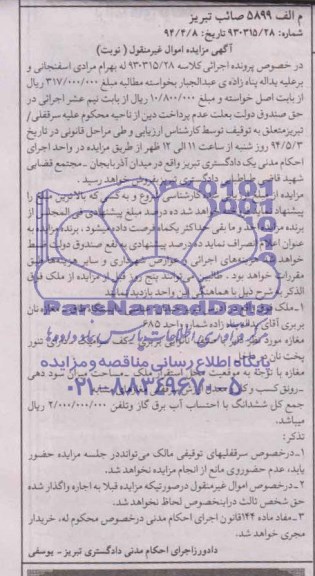 م الف ۵۸۹۹ صائب تبریز
شماره: ۹۳۰۳۱۵/۲۸ تاریخ: ۹۴/۲/۸
آگهی مزایده اموال غیرمنقول ( نوبت)
در خصوص پرونده اجرائی کلاسه ۹۳۰۳۱۵/۲۸ له بهرام مرادی اسفنجانی و
برعلیه یداله پناه زاده ی عبدالجبار بخواسته مطالبه مبلغ ۳۱۷/۰۰۰/۰۰۰ ریال
از بابت اصل خواسته و مبلغ ۱۰/۸۰۰/۰۰۰ ریال از بابت نیم عشر اجرائی در
حق صندوق دولت بعلت عدم پرداخت دین از ناحیه محکوم علیه سرقفلی/
تبریزمتعلق به توقیف توسط کارشناس ارزیابی و طی مراحل قانونی در تاریخ
۹۴/۵/۳ روز شنبه از ساعت ۱۱ الی ۱۲ ظهر از طریق مزایده در واحد اجرای
احکام مدنی یک دادگستری تبریز واقع در میدان آذربایجان ـ مجتمع قضایی
شهید قاضی طباطبایی دادگستری تبریز بفروش خواهد رسید.
مزایده از کارشناسی شروع و به کسی که بالاترین مبلغ را
پیشنهاد نماید خواهد شد ده درصد مبلغ پیشنهادی فی المجلس از
برنده مزایده اخذ و ما بقی حداکثر یکماه فرصت داده میشود، برنده مزایده به
عنوان انصراف نماید ده درصد پیشنهادی به نفع صندوق دولت ضبط
خواهد هزینه های اجرائی و عوارض شهرداری و سایر هزینه ها طبق
مقررات خواهد بود. طالبین می توانند پنج روز قبل از مزایده از ملک فوق
الذکر به شرح ذیل با هماهنگی این واحد بازدید نمایند
۱ـ ملک نان
بربری آقای یداله پناه زاده شماره واحد ۶۸۵
مغازه مورد تنور
پخت نان
مغازه با توجه به موقعیت محل استقرار ملک ـ مساحت میزان سود دهی
ـ رونق کسب و کار
جمع کل ششدانگ با احتساب آب برق گاز وتلفن ۲/۰۰۰/۰۰۰/۰۰۰ ریال
میباشد.
تذکر:
۱ـ درخصوص سرقفلیهای توقیفی مالک می تواند در جلسه مزایده حضور
یابد، عدم حضوروی مانع از انجام مزایده نخواهد شد.
۲ـ درخصوص اموال غیرمنقول درصورتیکه مزایده قبلا به اجاره واگذار شده
حق شخص ثالث دراینخصوص لحاظ نخواهد شد.
۳ـ مفاد ماده ۱۴۴ قانون اجرای احکام مدنی درخصوص محکوم له، خریدار
مجری خواهد شد.
دادورزاجرای احکام مدنی دادگستری تبریز ـ یوسفی
ParsNamadData
پایگاه اطلاع رسانی مناقصه و مزایده
۰۲۱-۸۸۳۴۹۶۷۰-۵